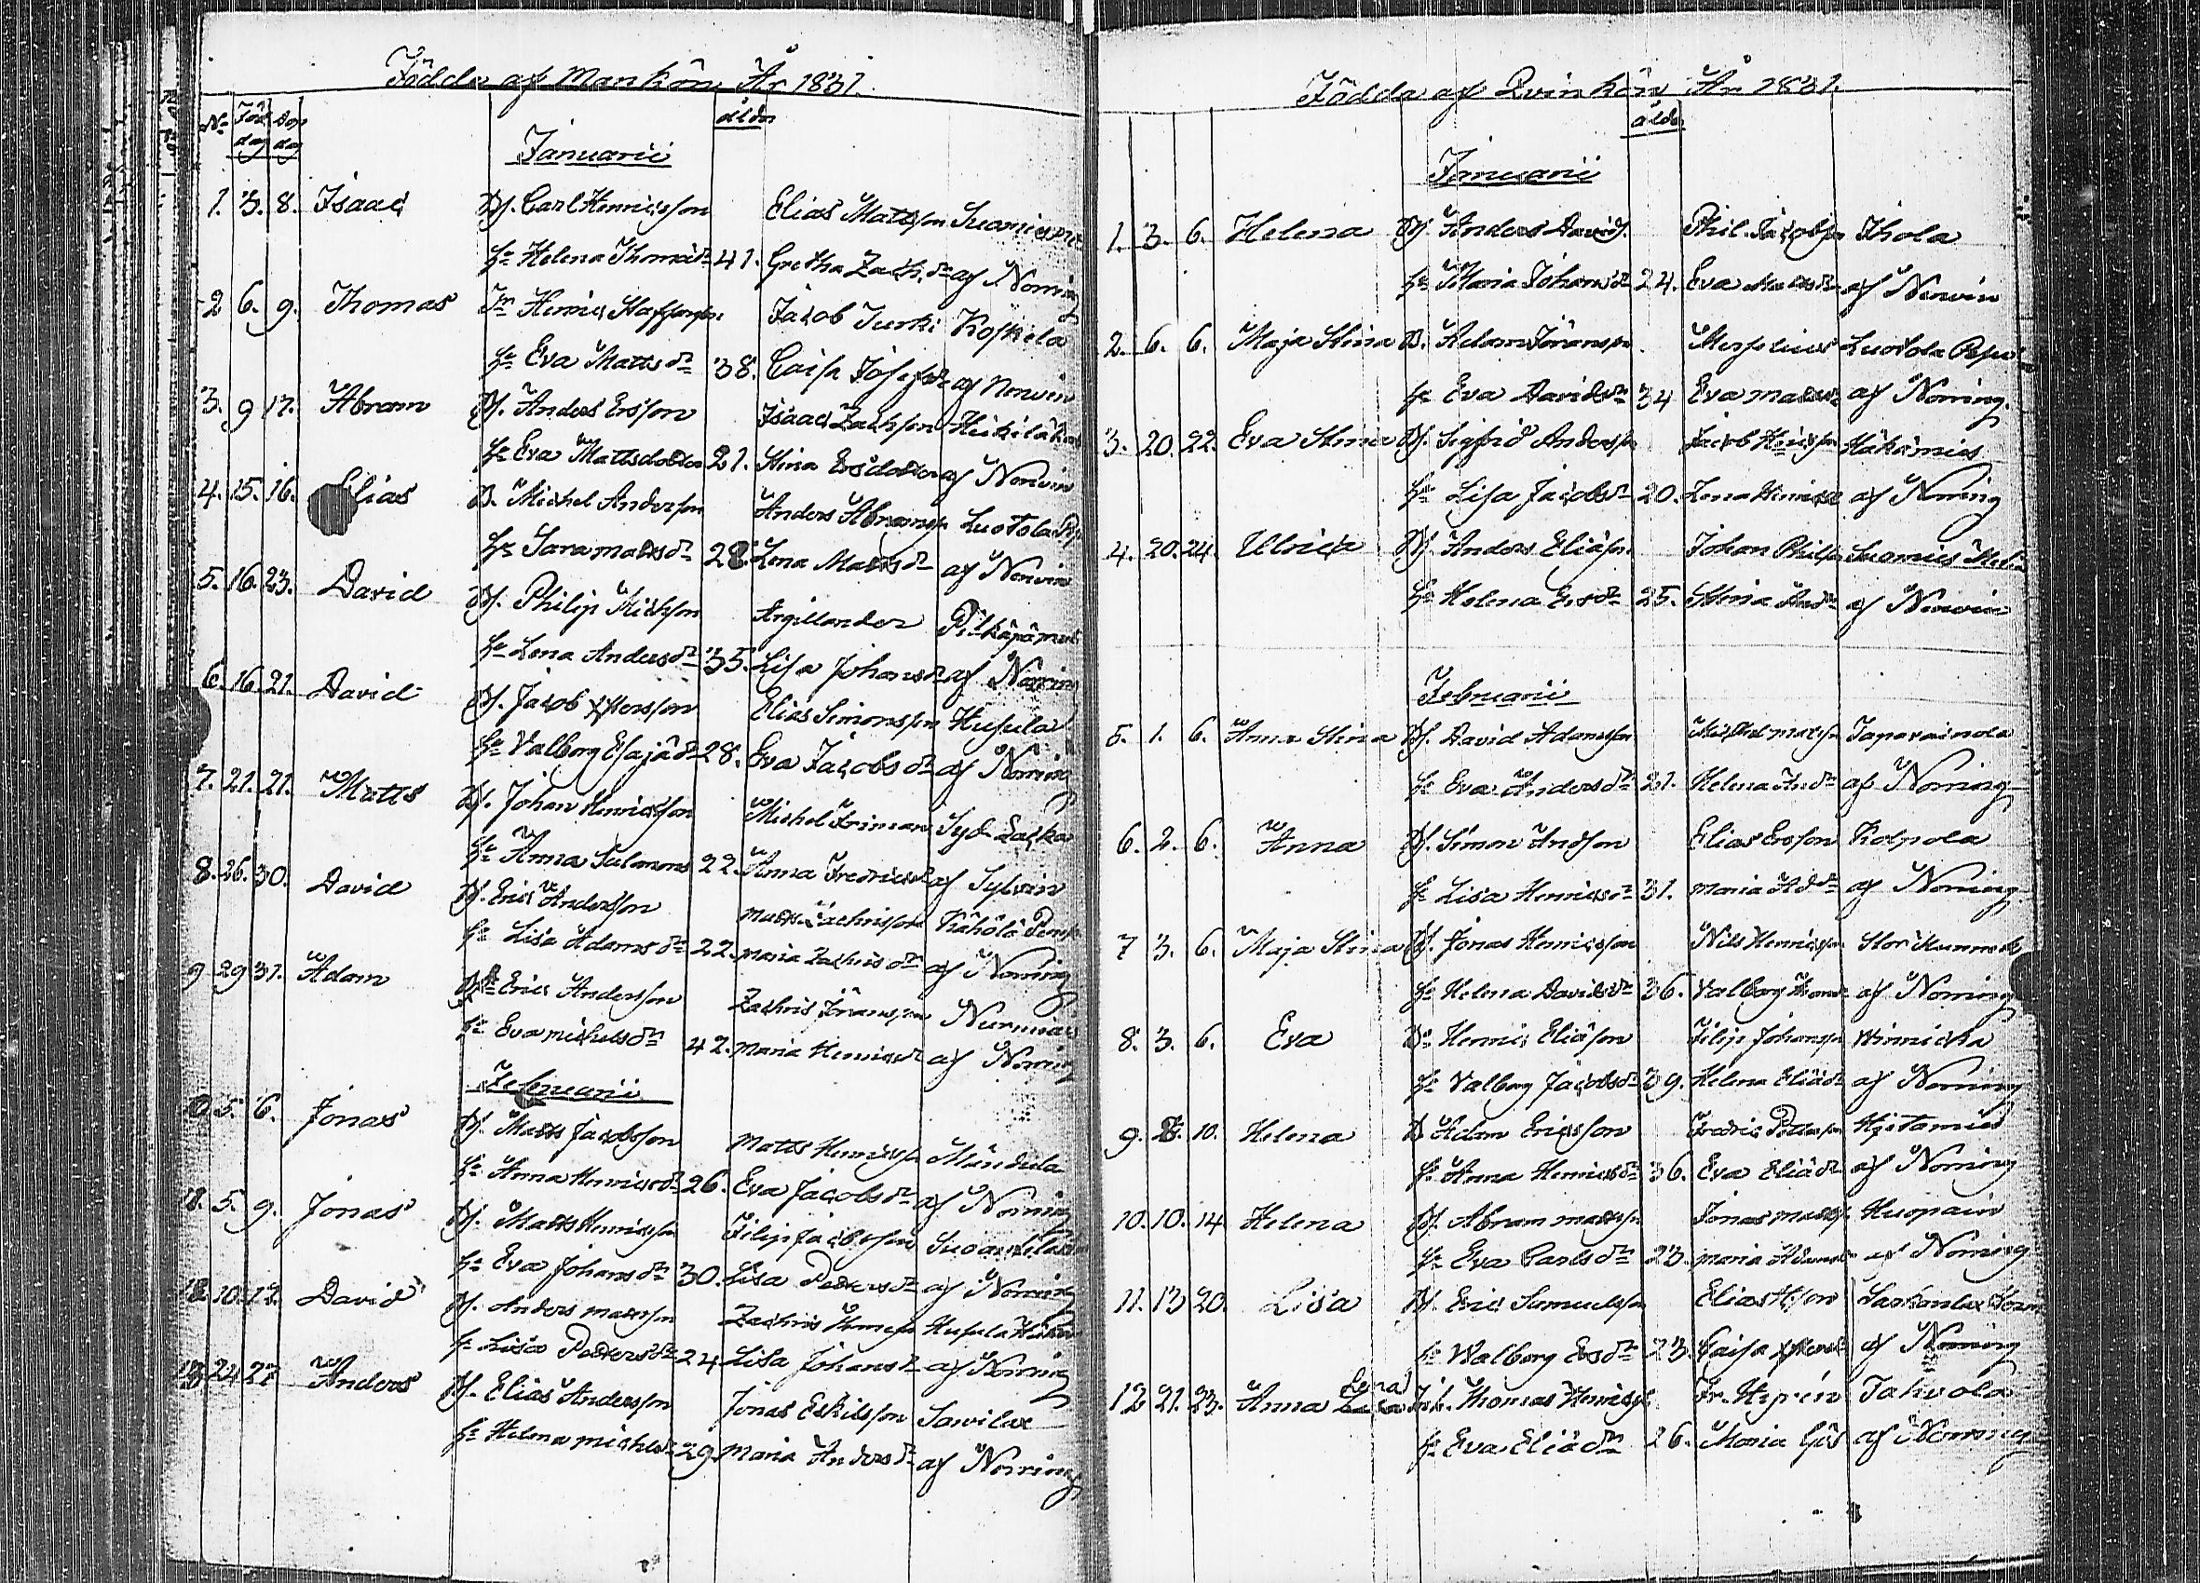 Födda af Mankön År 1831.
No Föd dag Döp dag ålder
Januarii
1. 3. 8. Isaac Bf. Carl Henricsson Elias Mattsson
hu Helena Thomædr 41. Gretha Zach.dr af Noring
2 6. 9. Thomas Henric Staffansson Jacob Turki Koskela
hu Eva Mattsdr 38. Caisa Josefsdr af Norvin
3. 9 17. Abram Bf. Anders Ersson Isaac Zachsson
hu Eva Mattsdotter 21. Stina Ersdotter af Norvin
4. 15. 16. Elias B. Michel Andersson Anders Abramsson Luotola
hu Sara Mattsdr 28. Lena Mattsdr af Norvin
5. 16. 23. David Bf. Philip Michsson Argillander
hu Lena Andersdr 35. Lisa Johansdr af Noring
6. 16. 21. David Bf. Jacob Persson Elias Simonsson Husula
hu Valborg Esajædr 28. Eva Jacobsdr af Noring
7. 21. 21. Matts Bf. Johan Henricsson Michel Friman
hu Anna Salomons 22. Anna Fredricsdr af Sylvin
8. 26. 30. David Bf. Eric Andersson Matts Zachrisson
hu Lisa Adamsdr 22. Maria Zachrisdr af Noring
9 29 31. Adam Eric Andersson Zachris Jöransson
hu Eva Michelsdr 42. Maria Henricsdr af Noring
Februarii
5. 6. Jonas Bf. Matts Jacobsson Matts Henricsson Mändula
hu Anna Henricsdr 26. Eva Jacobsdr af Noring
5. 9. Jonas Bf. Matts Henricsson Filip Jacobsson
hu Eva Johansdr 30. Lisa Pettersdr af Noring
10. 12. David Bf. Anders Mattsson Zachris Husula
hu Lisa Pettersdr 24 Lisa Johansdr af Noring
13 24 27 Anders Bf. Elias Andersson Jonas Eskilsson Sawilax
hu Helena Michelsdr 29 Maria Andersdr af Noring
Födda af Qvinkön År 1831.
ålder
Januarii
1. 3. 6. Helena Bf. Anders Davids. Phil. Jacobsson Ihola
hu Maria Johansdr 24. Eva Mattsdr af Norvin
2. 6. 6. Maja Stina B. Adam Jöransson Luotola
hu Eva Davidsdr 34 Eva Mattsdr af Noring.
3. 20. 22. Eva Stina Bf. Sigfrid Andersson Jacob Henricsson Häkämies
hu Lisa Jacobsdr 20. Lena Henricsdr af Noring
4. 20. 24. Ulrica Bf. Anders Eliæsson Johan Philsson Suomies
hu Helena Ersdr 25. Stina Andr af Norvin
Februarii
5. 1. 6. Anna Stina Bf. David Adamsson Michel Mattsson Taparainola
hu Eva Andersdr 21. Helena Andr af Noring
6. 2. 6. Anna Bf. Simon Andsson Elias Ersson Kolpola
hu Lisa Henricsdr 31. Maria Addr af Noring
7 3. 6. Maja Stina Bf. Jonas Henricsson Nils Henricsson
hu Helena Davidsdr 36. Valborg Thomdr af Noring
8. 3. 6. Eva Henric Eliæsson Filip Johansson Winnicka
hu Valborg Jacobsdr 39. Helena Eliædr af Noring
9. 8. 10. Helena B Adam Ericsson Fredric Pettersson Hjetamies
hu Anna Henricsdr 36. Eva Eliædr af Noring
10. 10. 14. Helena Bf. Abram Mattsson Jonas Mattsson Huopain
hu Eva Carlsdr 23. Maria Adamsdr af Noring
11. 13 20. Lisa Bf. Eric Samuelsson Elias
hu Walborg Ersdr 23. Caisa af Noring
Lena
12 21. 23. Anna Thomas Henricsson Fr. Hypén Takvola
hu Eva Eliædr 26. Maria Gös af Noring